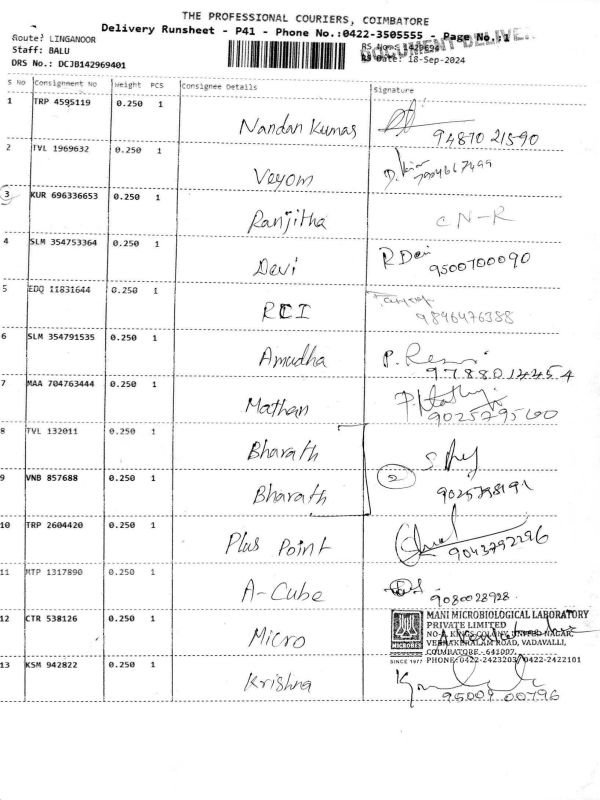 THE PROFESSIONAL COURIERS, COIMBATORE
Delivery Runsheet - P41 - Phone No.:0422-3505555 - Page No.:1
Route: LINGANOOR
Staff: BALU
DRS No.: DCJB142969401
RS No.: 1429694
RS Date: 18-Sep-2024
DOCUMENT DELIVER
S No Consignment No Weight PCS Consignee Details Signature
1 TRP 4595119 0.250 1 Nandan Kumas 94870 21590
2 TVL 1969632 0.250 1 Veyom D. 7904667499
3 KUR 696336653 0.250 1 Ranjitha CN-R
4 SLM 354753364 0.250 1 Devi R Devi 9500700090
5 EDQ 11831644 0.250 1 RCI 9846476388
6 SLM 354791535 0.250 1 Amudha P. 9788014454
7 MAA 704763444 0.250 1 Mathan 9025795600
8 TVL 132011 0.250 1 Bharath
9 VNB 857688 0.250 1 Bharath 2 9025798191
10 TRP 2604420 0.250 1 Plus Point 9043792296
11 MTP 1317890 0.250 1 A-Cube 9080028928
12 CTR 538126 0.250 1 Micro
MICROBES
SINCE 1977
MANI MICROBIOLOGICAL LABORATORY
PRIVATE LIMITED
NO-4, KINGS COLONY, UNITED NAGAR,
VEERAKERALAM ROAD, VADAVALLI,
COIMBATORE - 641007.
PHONE: 0422-2423203, 0422-2422101
13 KSM 942822 0.250 1 Krishna 95009 00796